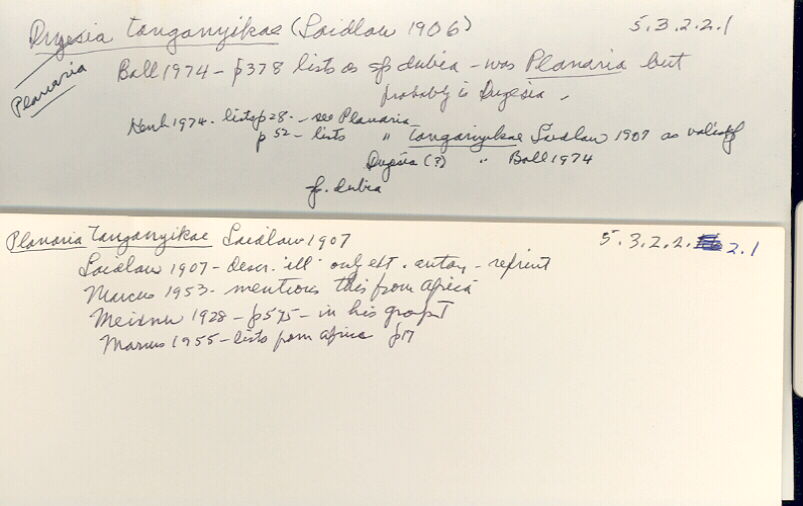 Dugesia tanganyikae (Laidlaw 1906) 5.3.2.2.1
Planaria
Ball 1974 - p378 lists as sp dubia - was Planaria but
probably is Dugesia.
1974. lists p 28. - see Planaria
p 52 - lists " tanganyikae Laidlaw 1907 as valid sp
Dugesia (?) " Ball 1974
sp. dubia
Planaria tanganyikae Laidlaw 1907 5.3.2.2. 2.1
Laidlaw 1907 - descr. ill. only ext. anatomy - reprint
Marcus 1953 - mentions this from Africa
Meixner 1928 - p575 - in his group I
Marcus 1955 - lists from Africa p17